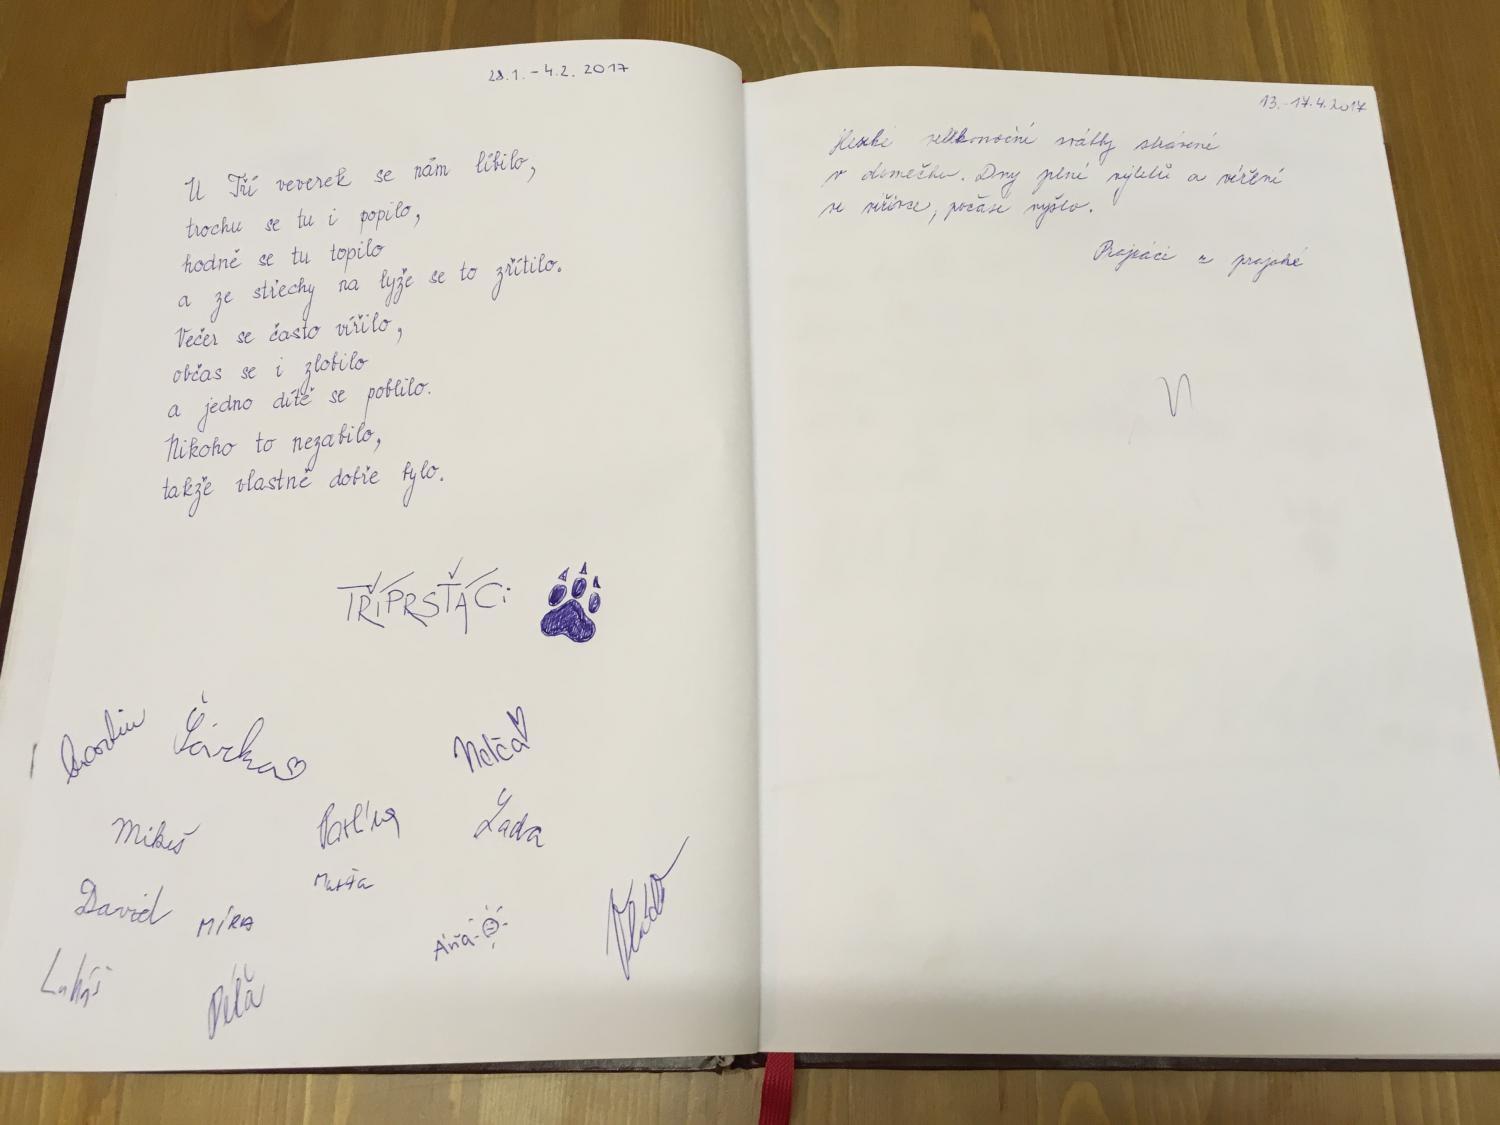 28.1. - 4.2. 2017
U Tří veverek se nám líbilo,
trochu se tu i popilo,
hodně se tu topilo
a ze střechy na lyže se to zřítilo.
Večer se často vířilo,
občas se i zlobilo
a jedno dítě se poblilo.
Nikoho to nezabilo,
takže vlastně dobře bylo.
TŘÍPRSŤÁCI
Martin Šárka
Nelča
Mikeš Pavlína Láďa
David MÍRA
Áňa
Vláďa
Lukáš Péťa
13.-17.4.2017
Hezké velikonoční svátky strávené
v domečku. Dny plné výletů a víření
ve vířivce, počasí vyšlo.